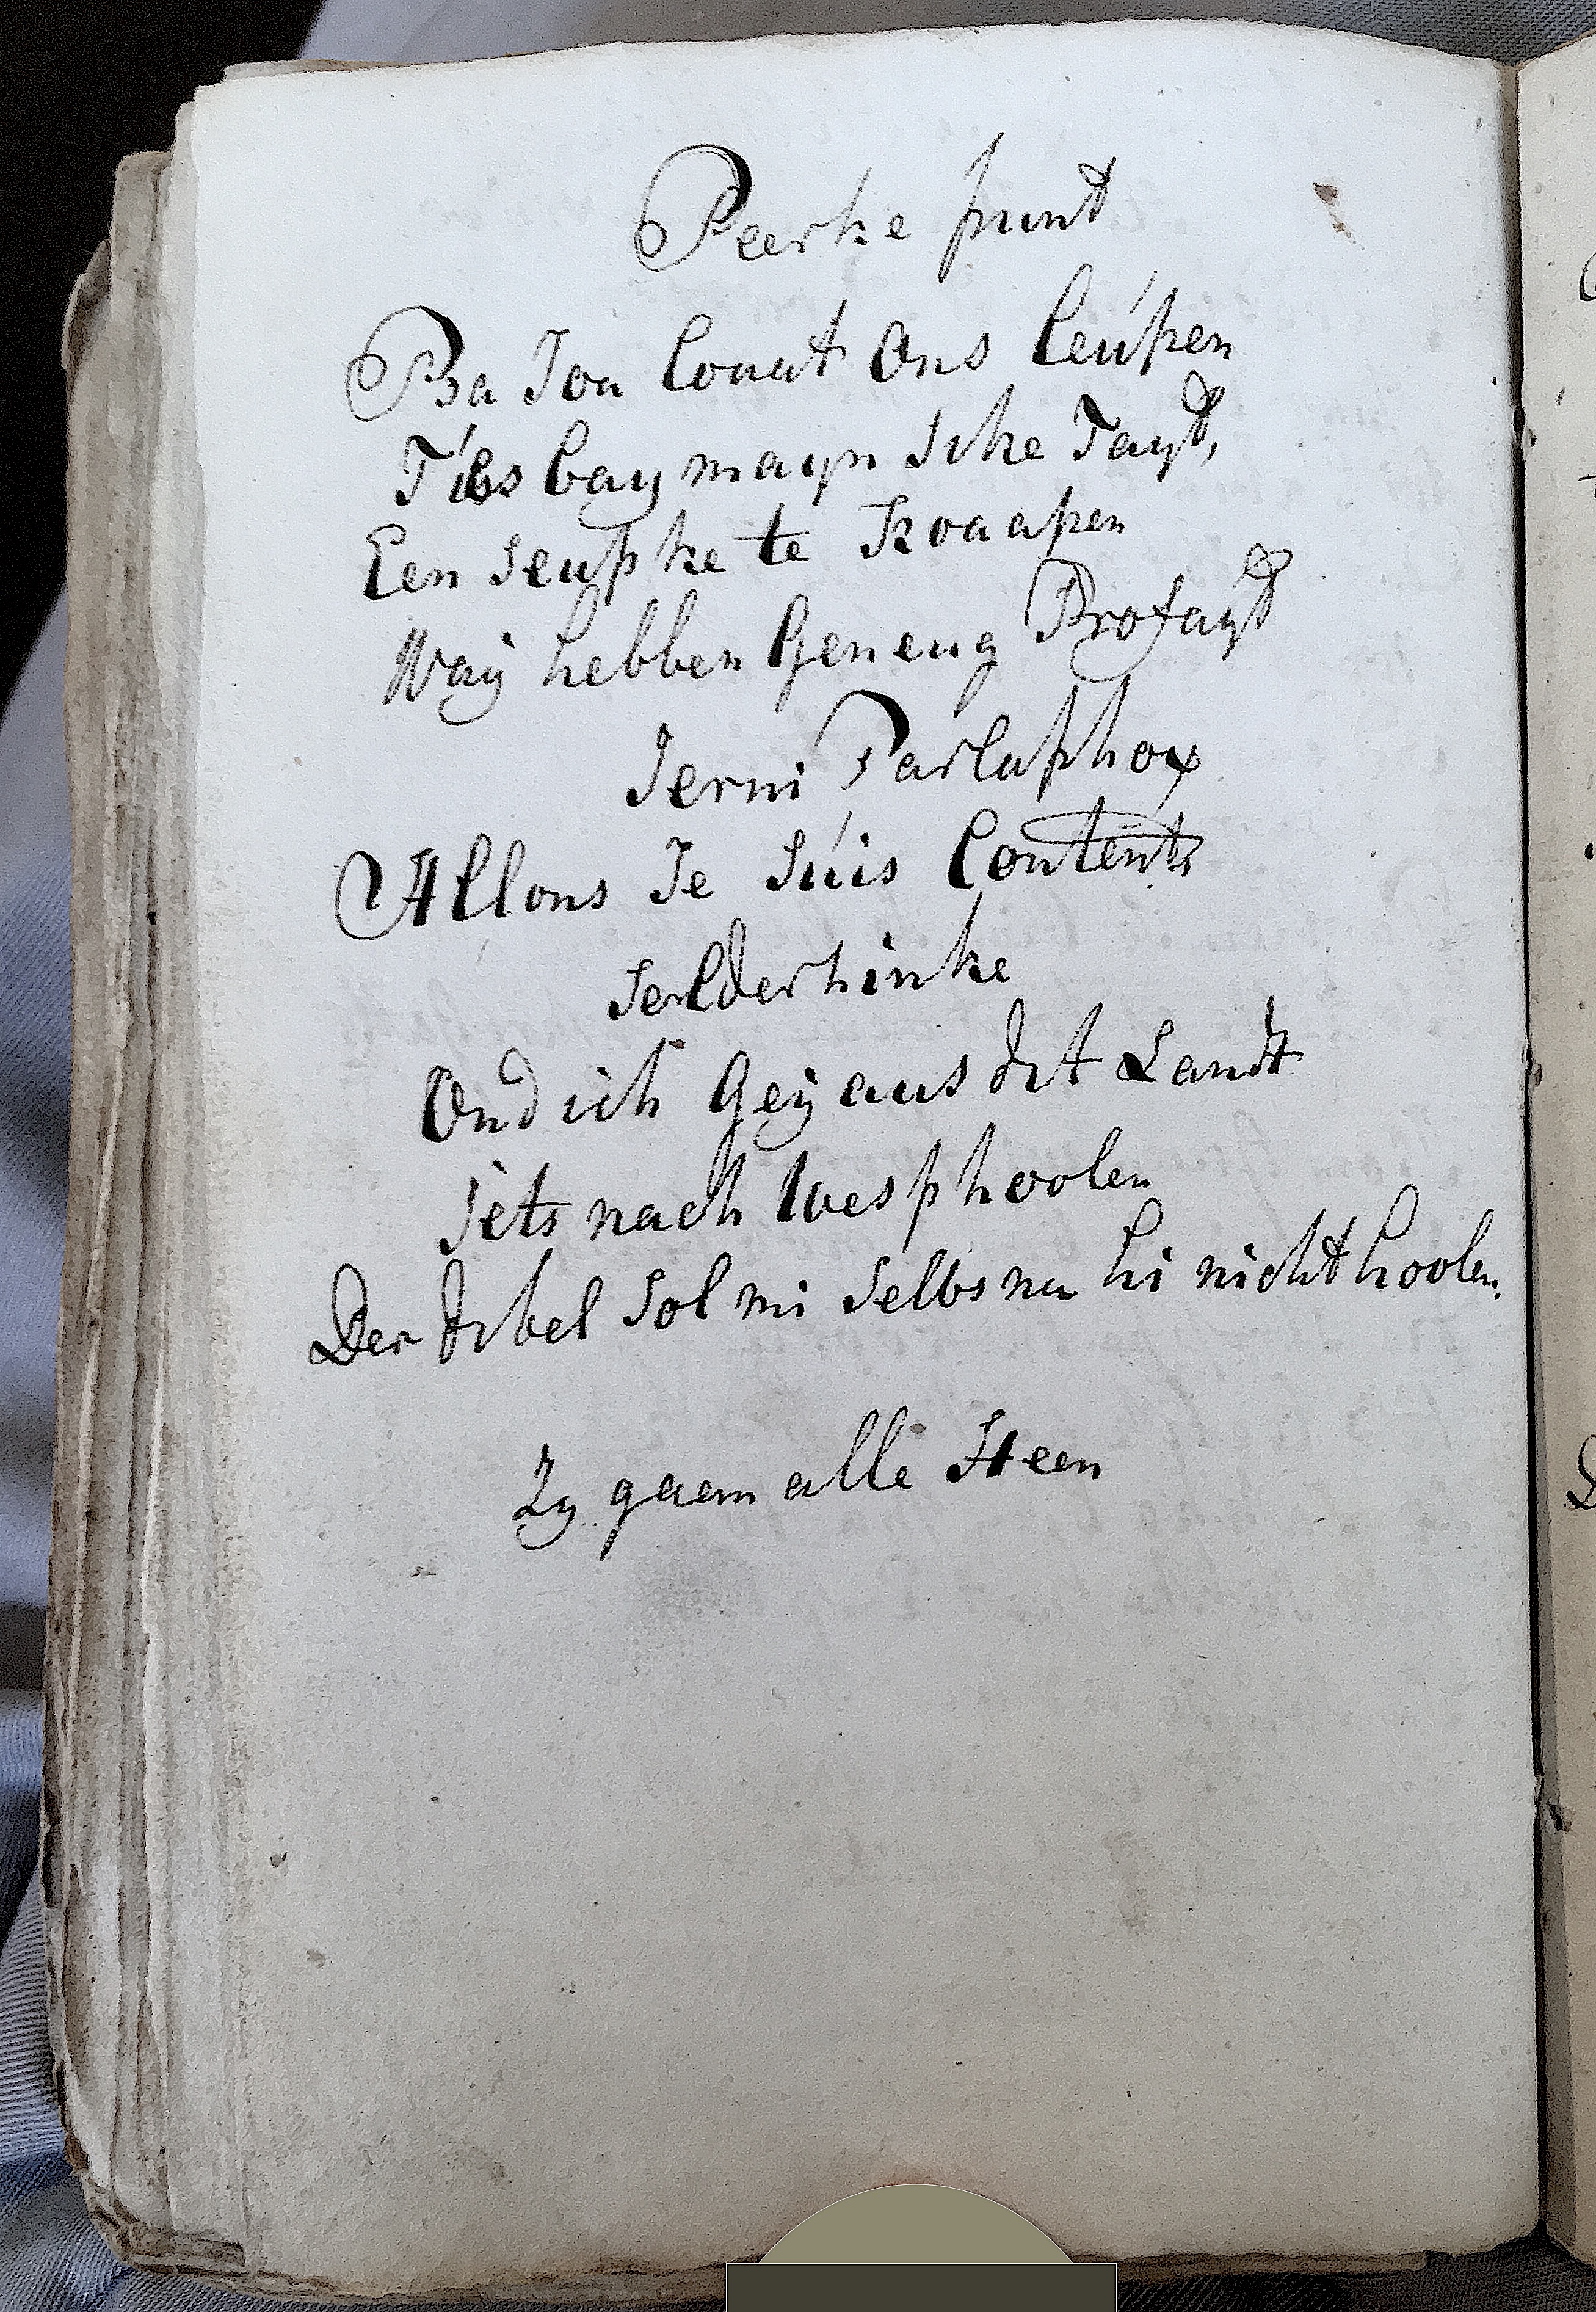 Peerke punt
Ba Jou Couut Ons Leúpen
T'is bay mayn Sike Tayt,
Een seupke te Koaapen
Way hebben Geneug Profayt
Jerni Parlaphox
Allons Je Súis Contents
Selderhinke
Ond ich Geÿ aus dit Landt
Sets nach Wesphoolen
Der Dibel Sol mi Selbs nu hi nicht hoolen.
Zy gaen alle Heen